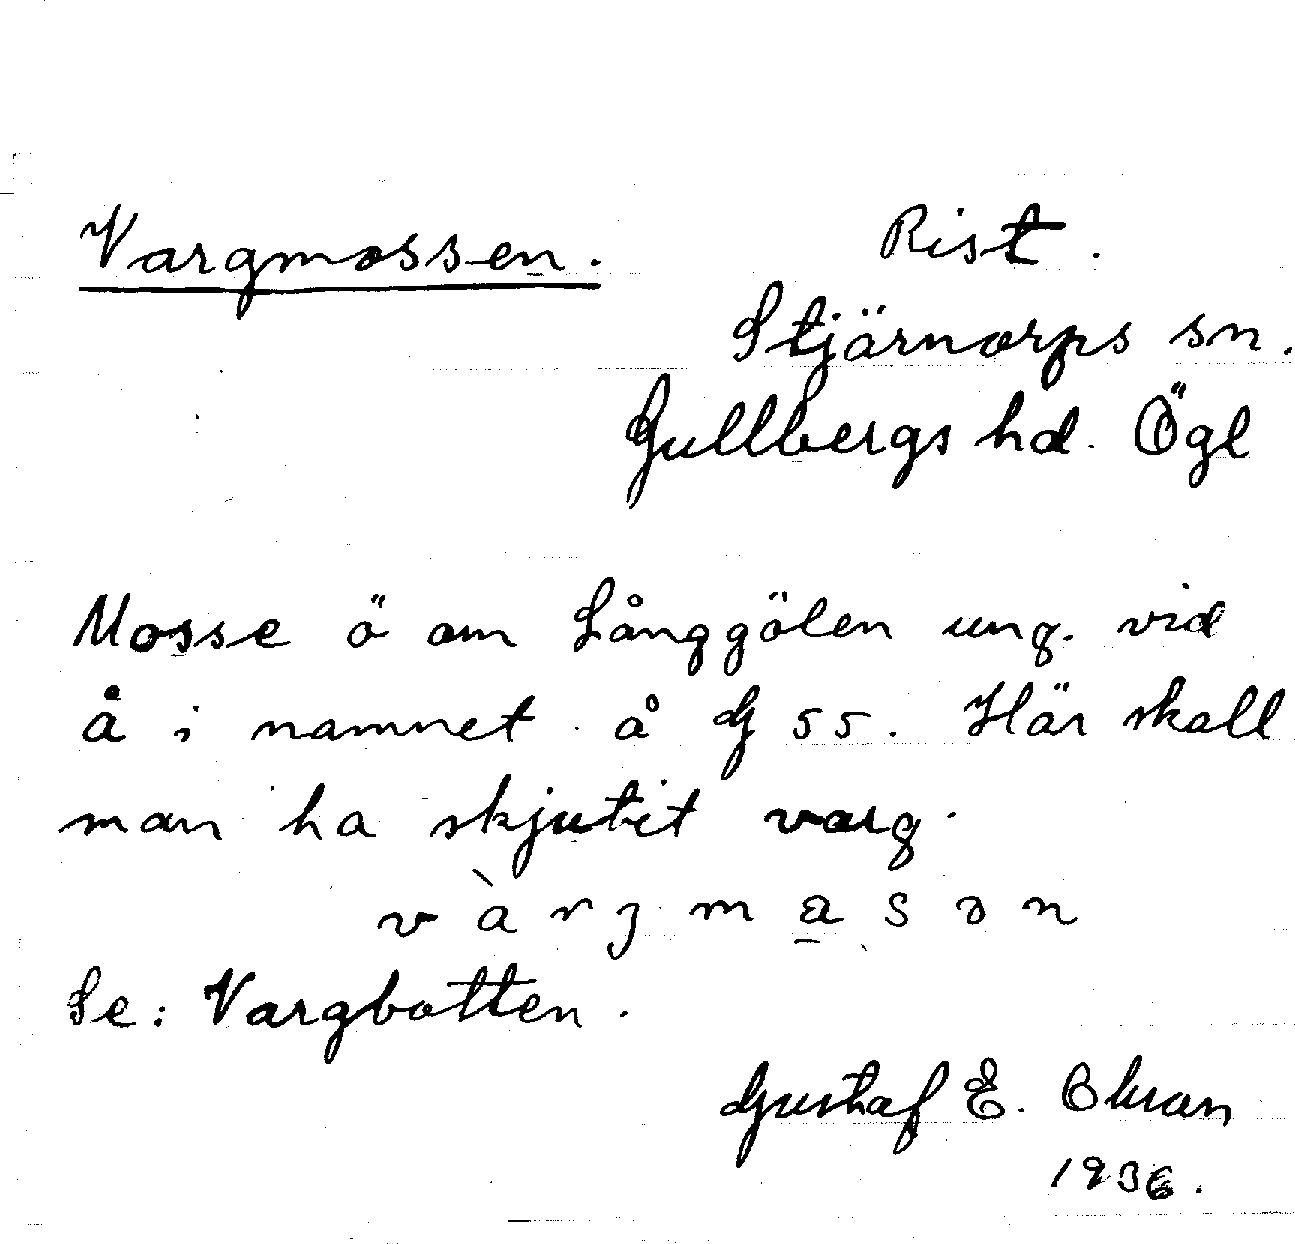 Vargmossen. Rist.
Stjärnorps sn.
Gullbergs hd. Ögl
Mosse ö om Långgölen ung. vid
å i namnet å G 55. Här skall
man ha skjutit varg.
và rʒ m a s ə n
Se: Vargbotten.
Gustaf E.
1936.